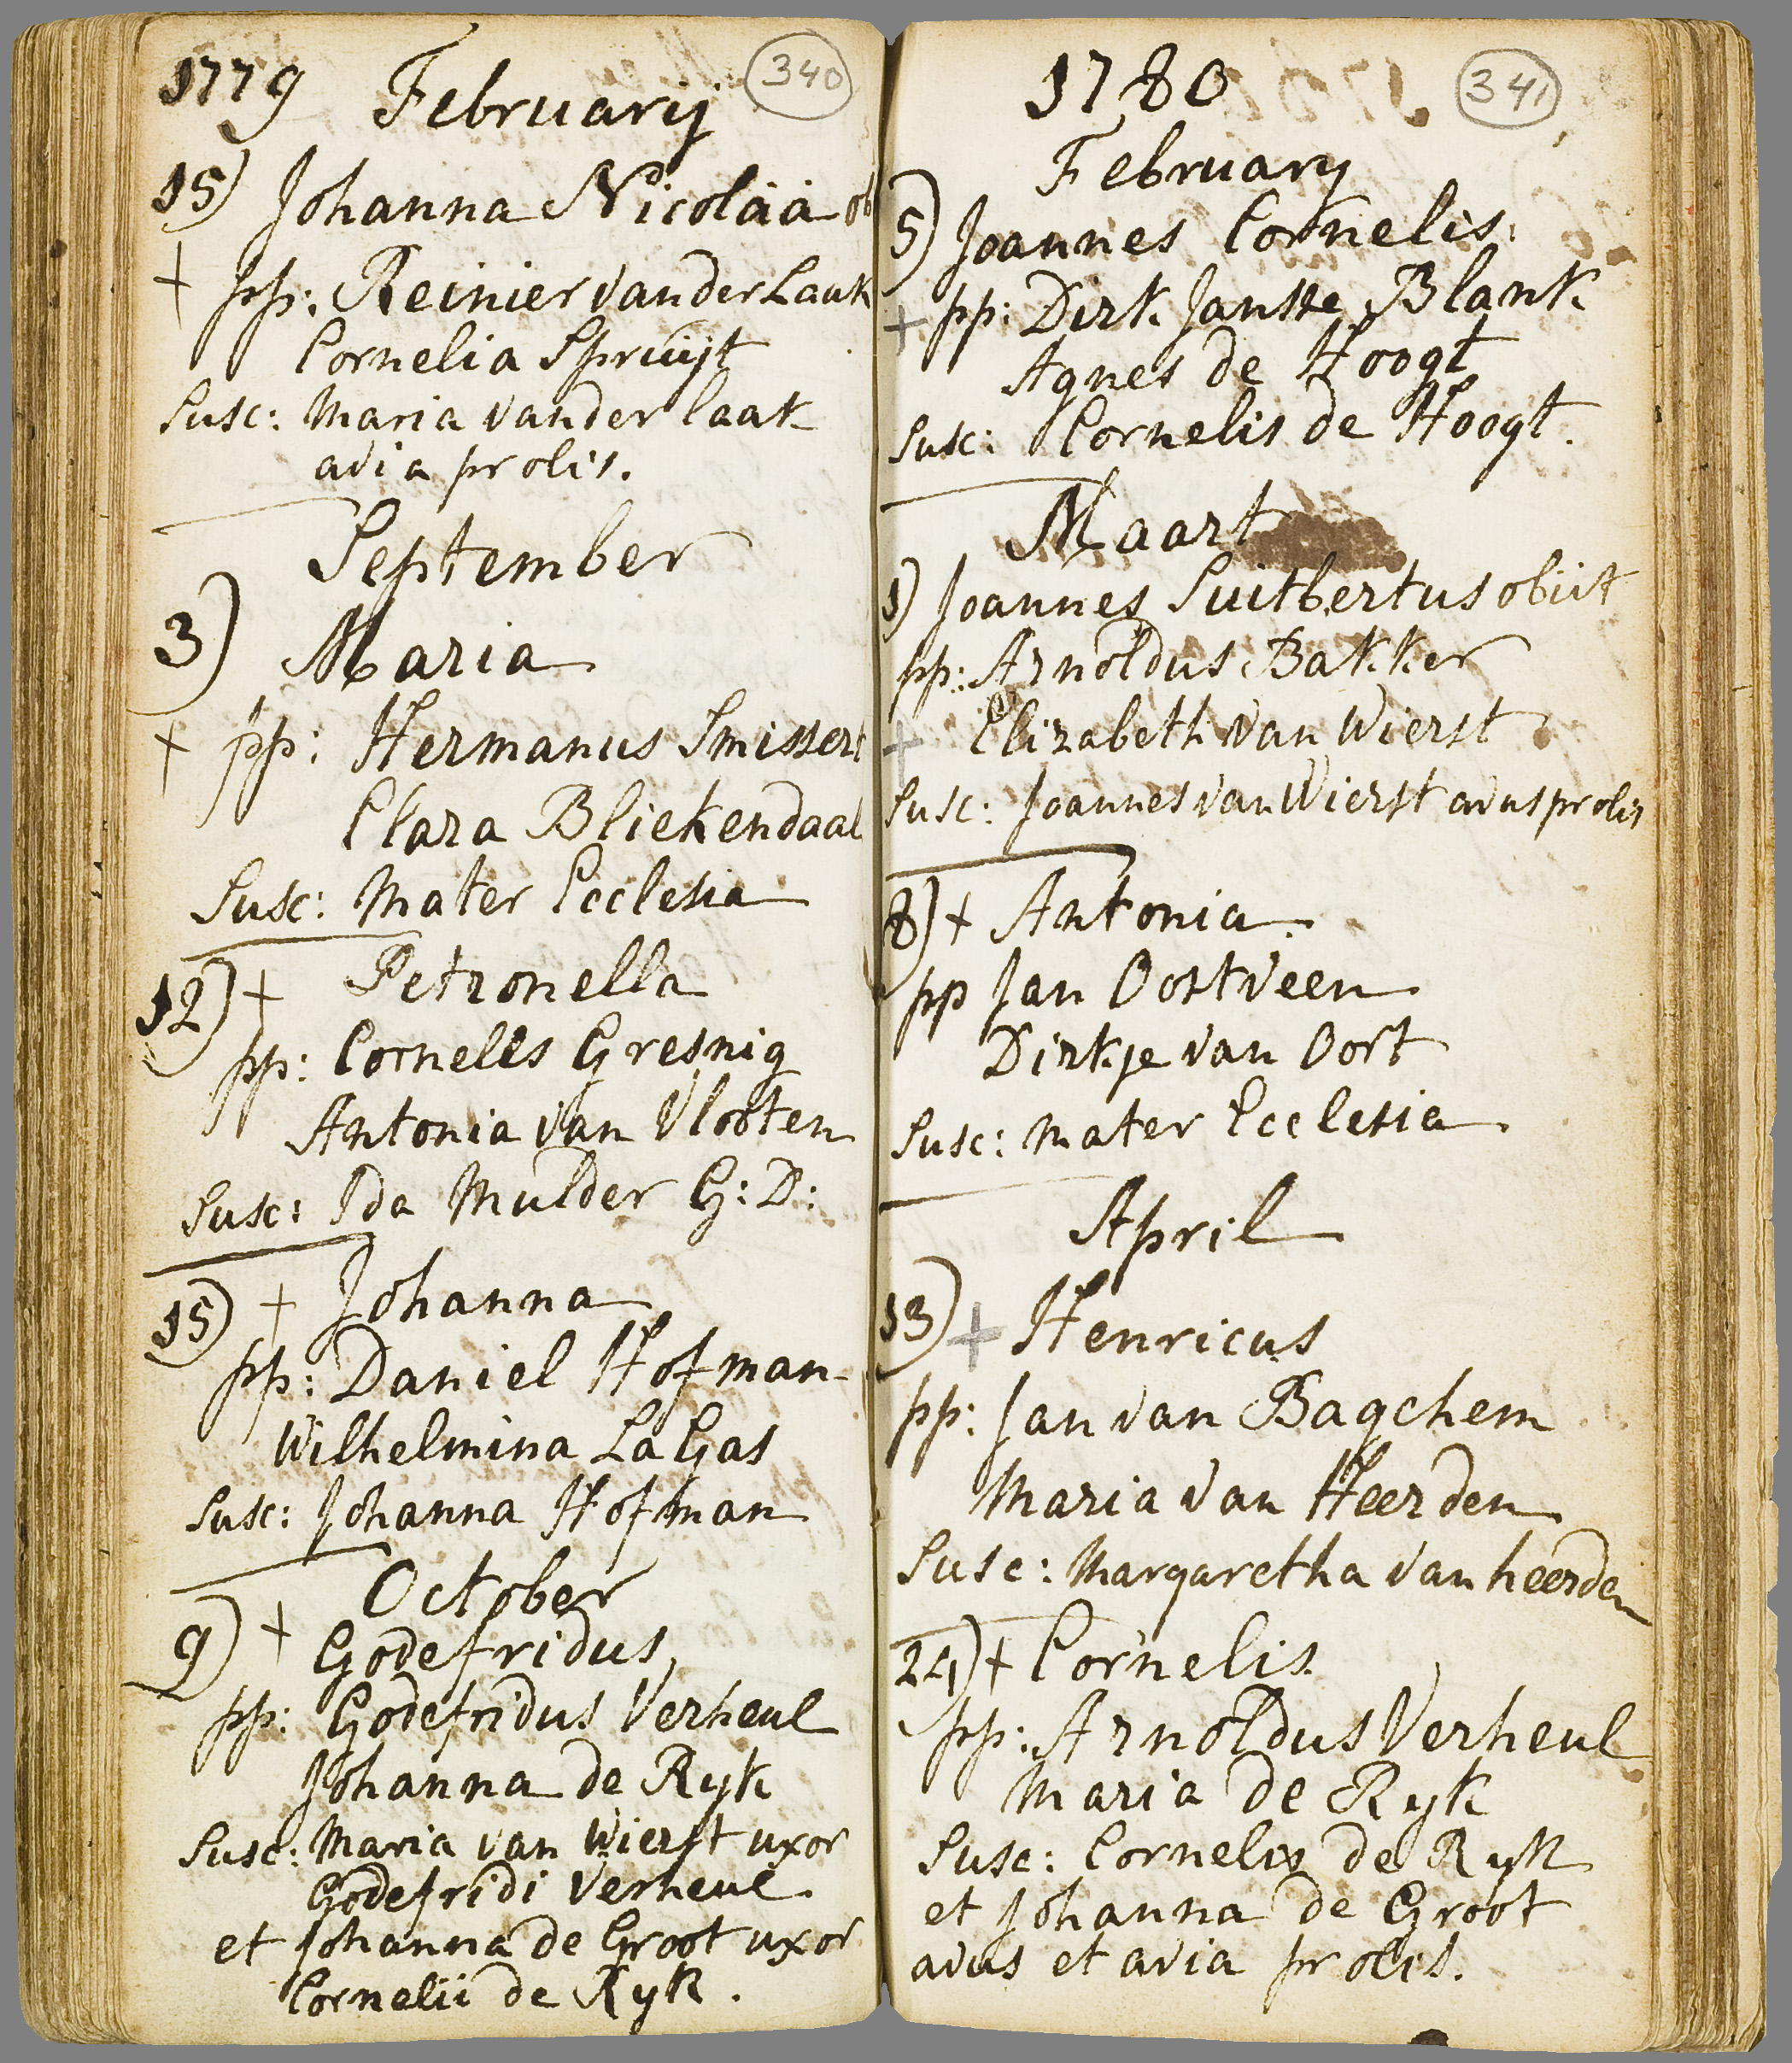 1779 Februarij 340
15) Johanna Nicolaä ob
+ pp: Reinier vander Lauk
Cornelia Spruijt
Susc: Maria vander laak
avia prolis.
September
3) Maria
+ pp: Hermanus Smissert
Clara Bliekendaal
Susc: Mater Ecclesia
12) + Petronella
pp: Cornelis Gresnig
Antonia van Vlooten
Susc: Ida Mulder G: D:
15) + Johanna
pp: Daniel Hofman
Wilhelmina La Gas
Susc: Johanna Hofman
October
9) + Godefridus
pp: Godefridus Verheul
Johanna de Ryk
Susc: Maria van Wierst uxor
Godefridi Verheul
et Johanna de Groot uxor
Cornelii de Ryk.
1780 341
February
5) Joannes Cornelis
+ pp: Dirk Jansse Blank
Agnes de Hoogt
Susc: Cornelis de Hoogt.
Maart
1) Joannes Suitbertus obiit
pp: Arnoldus Bakker
+ Elizabeth van Wierst
Susc: Joannes van Wierst avus prolis
8) + Antonia
pp Jan Oostveen
Dirkje van Oort
Susc: Mater Ecclesia
April
13) + Henricus
pp: Jan van Bagchem
Maria van Heerden
Susc: Margaretha van heerden
24) + Cornelis
pp: Arnoldus Verheul
Maria de Ryk
Susc: Cornelis de Ryk
et Johanna de Groot
avus et avia prolis.